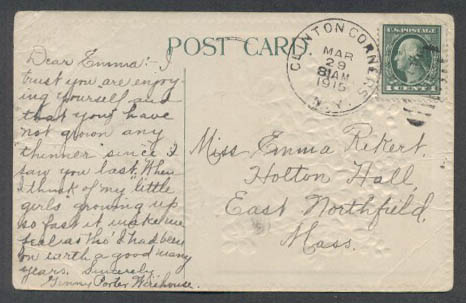 POST CARD.
CLINTON CORNERS
MAR
29
8 AM
1915
N.Y.
U.S. POSTAGE
1 CENT 1
Dear Emma:- I
trust you are enjoy-
ing yourself and
that you have
not grown any
"thinner" since I
saw you last. When
I think of my little
girls growing up
so fast it makes me
feel as tho' I had been
on earth a good many
years. Sincerely
Porter Wirehouse.
Miss Emma Rikert.
Holton Hall,
East Northfield,
Mass.